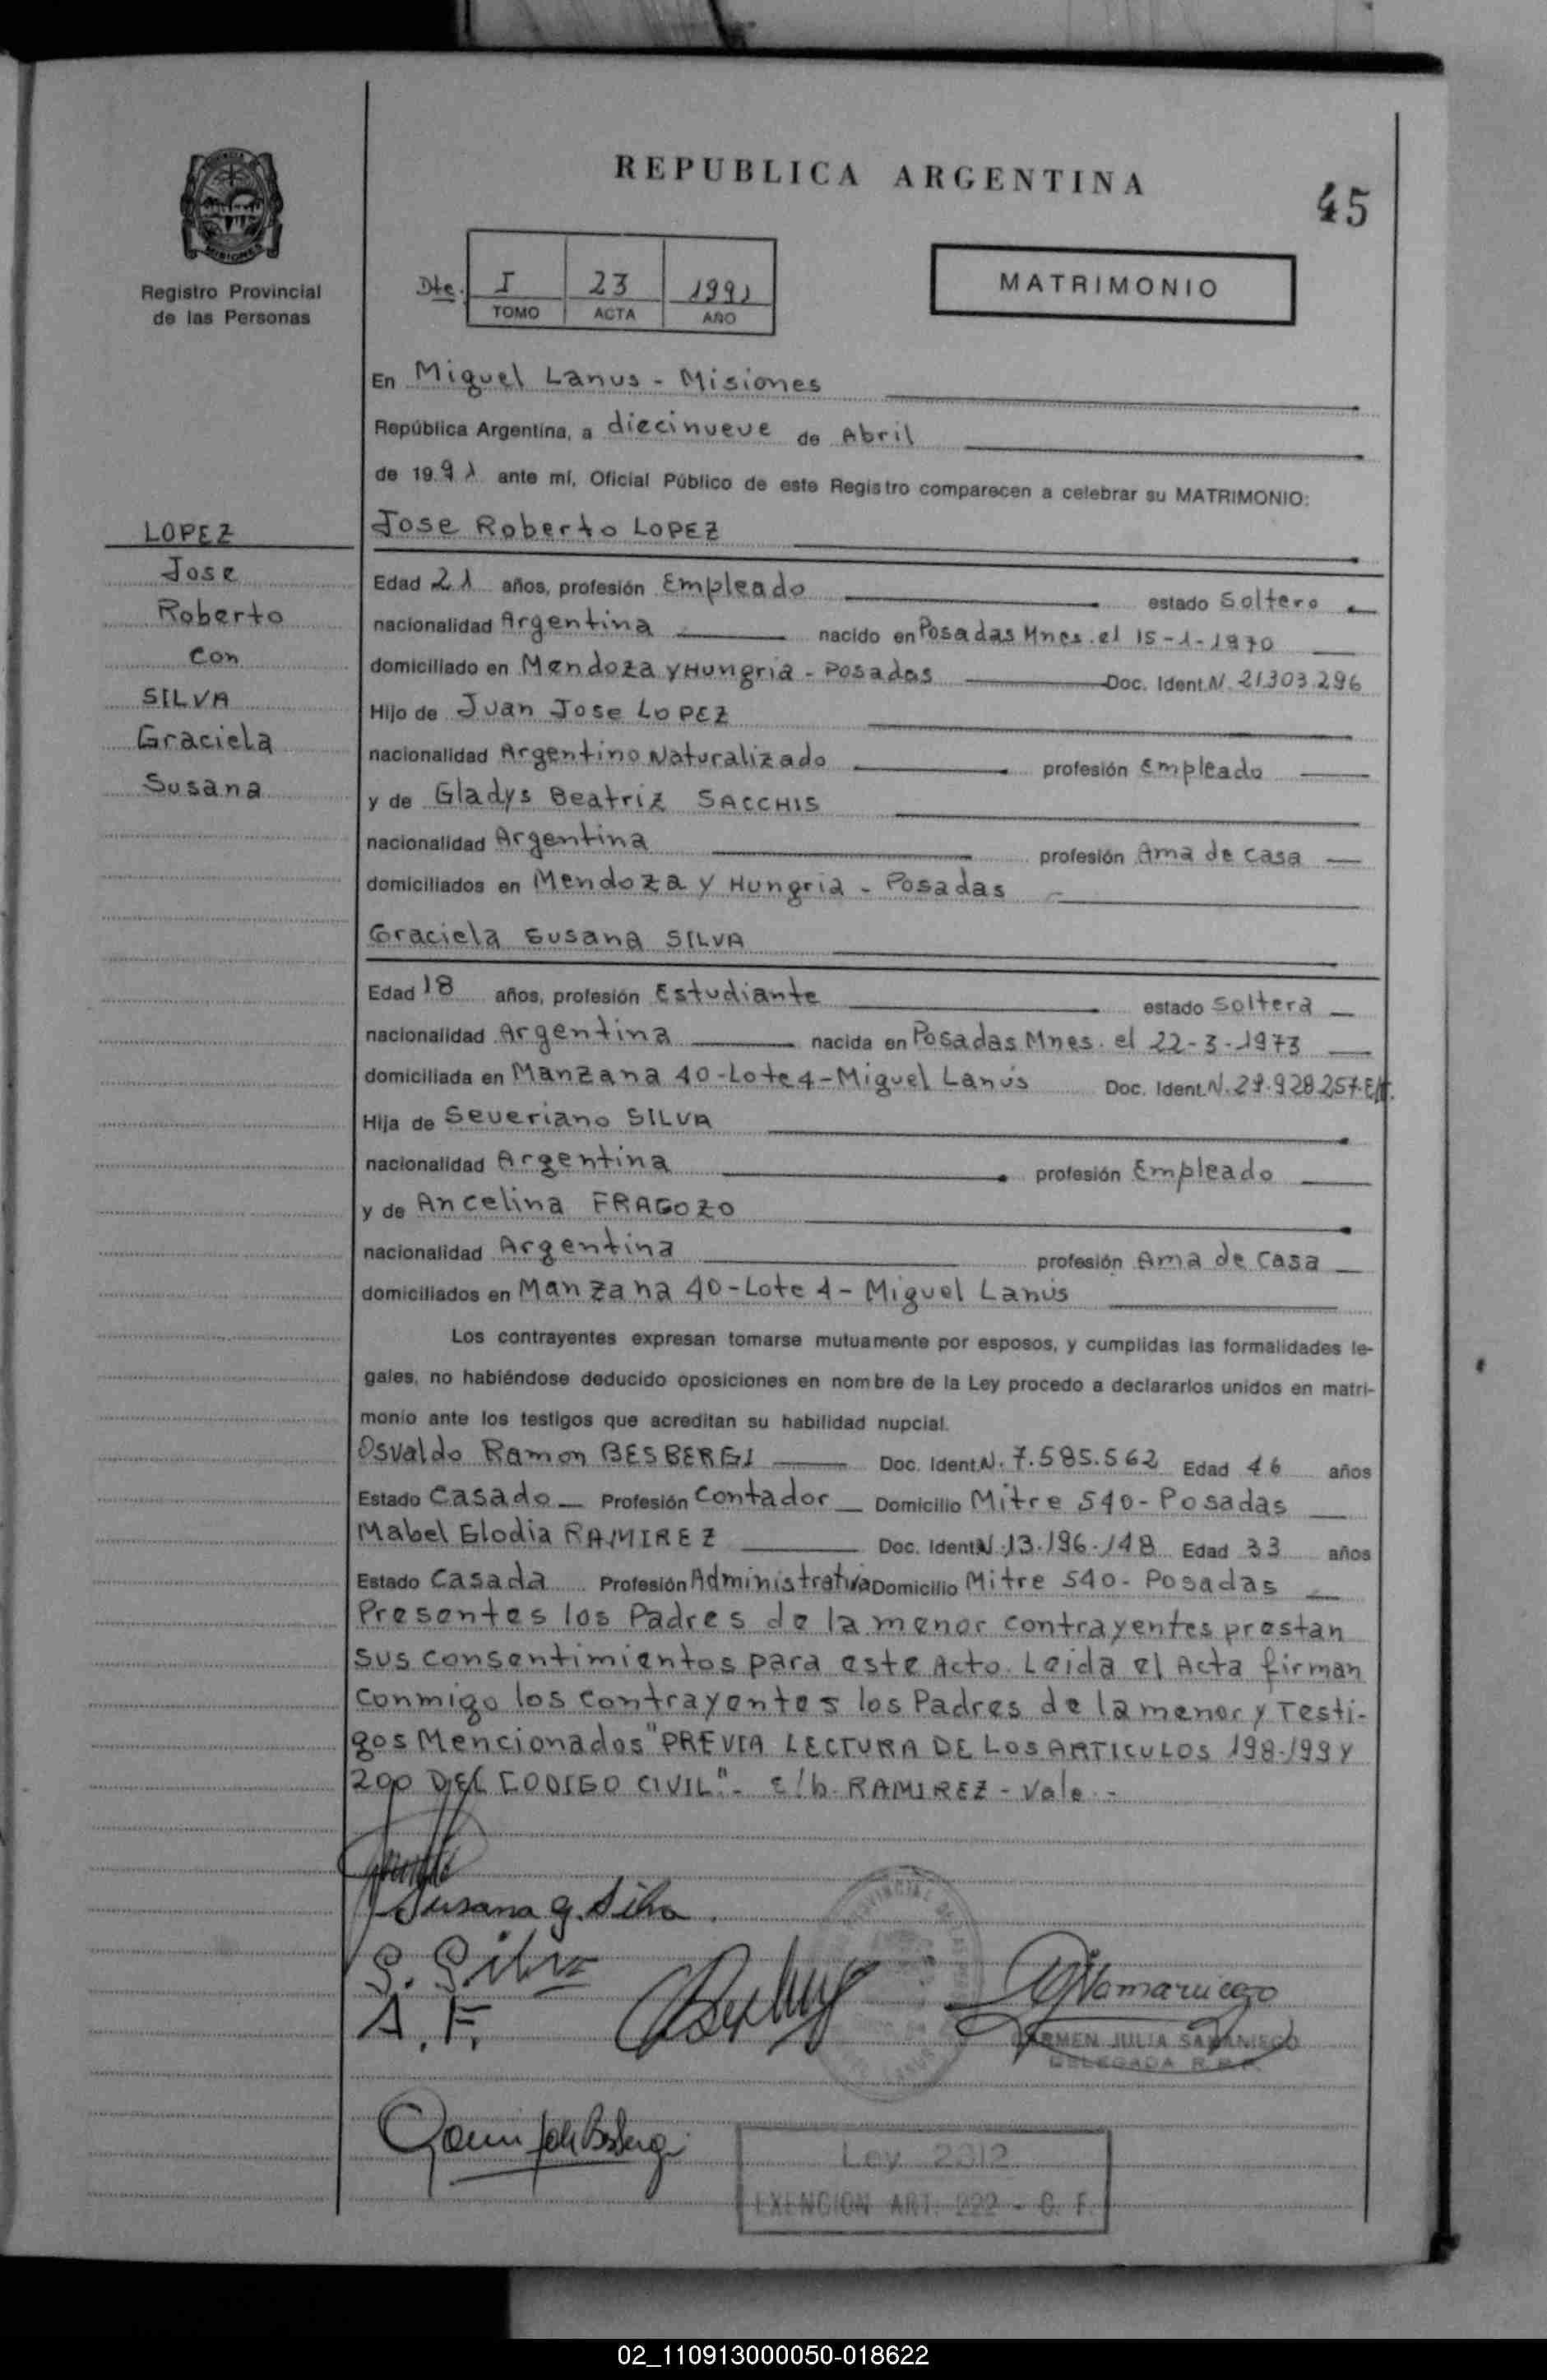 REPUBLICA ARGENTINA
45
MISIONES
Registro Provincial
de las Personas
Dte. I 23 1991
TOMO ACTA AÑO
MATRIMONIO
En Miguel Lanus - Misiones
República Argentina, a diecinueve de Abril
de 1991 ante mí, Oficial Público de este Registro comparecen a celebrar su MATRIMONIO:
LOPEZ
Jose
Roberto
con
SILVA
Graciela
Susana
Jose Roberto LOPEZ
Edad 21 años, profesión Empleado estado Soltero
nacionalidad Argentina nacido en Posadas Mnes. el 15-1-1970
domiciliado en Mendoza y Hungria - Posadas Doc. Ident. N. 21.303.296
Hijo de Juan Jose LOPEZ
nacionalidad Argentino Naturalizado profesión Empleado
y de Gladys Beatriz SACCHIS
nacionalidad Argentina profesión Ama de casa
domiciliados en Mendoza y Hungria - Posadas
Graciela Susana SILVA
Edad 18 años, profesión Estudiante estado Soltera
nacionalidad Argentina nacida en Posadas Mnes. el 22-3-1973
domiciliada en Manzana 40-Lote 4-Miguel Lanús Doc. Ident. N.
Hija de Severiano SILVA
nacionalidad Argentina profesión Empleado
y de Ancelina FRAGOZO
nacionalidad Argentina profesión Ama de casa
domiciliados en Manzana 40-Lote 4- Miguel Lanús
Los contrayentes expresan tomarse mutuamente por esposos, y cumplidas las formalidades le-
gales, no habiéndose deducido oposiciones en nombre de la Ley procedo a declararlos unidos en matri-
monio ante los testigos que acreditan su habilidad nupcial.
Osvaldo Ramon BESBERGI Doc. Ident. N. 7.585.562 Edad 46 años
Estado Casado Profesión Contador Domicilio Mitre 540- Posadas
Mabel Elodia RAMIREZ Doc. Ident. N. 13.196.148 Edad 33 años
Estado Casada Profesión Administrativa Domicilio Mitre 540- Posadas
Presentes los Padres de la menor contrayentes prestan
sus consentimientos para este Acto. Leida el Acta firman
conmigo los contrayentes los Padres de la menor y Testi-
gos Mencionados "PREVIA LECTURA DE LOS ARTICULOS 198-199 Y
200 DEL CODIGO CIVIL".- E/b. RAMIREZ - Vale.-
Susana G. Silva.
S. Silva
A. F.
CARMEN JULIA SAMANIEGO
DELEGADA R.P.P.
Ley 2312
EXENCION ART. 222 - C. F.
02_110913000050-018622